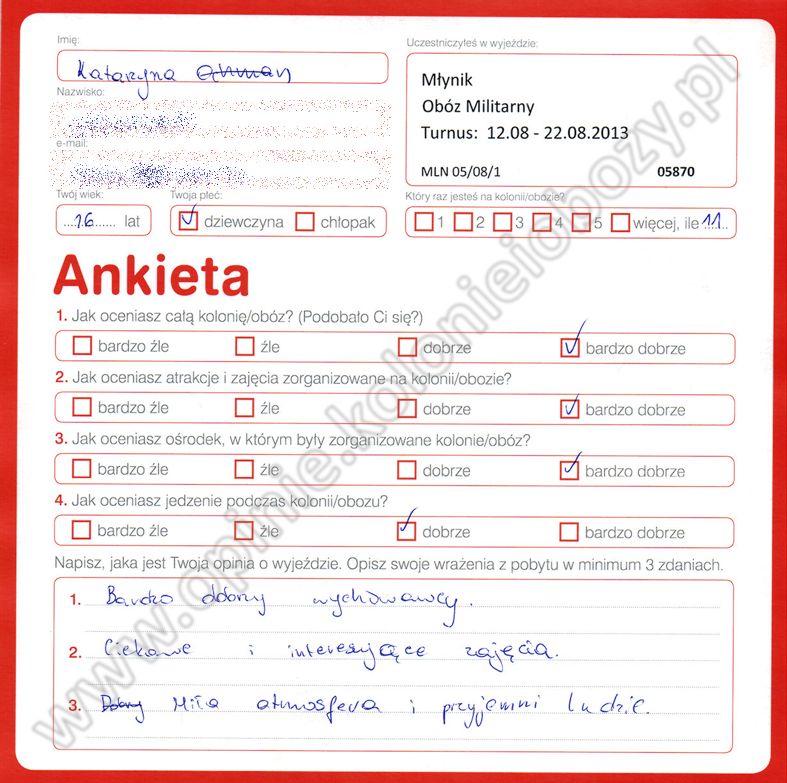 Imię:
Uczestniczyłeś w wyjeździe:
Kataryna
Młynik
Obóz Militarny
Turnus: 12.08 - 22.08.2013
MLN 05/08/1 05870
Nazwisko:
e-mail:
Twój wiek: Twoja płeć:
Który raz jesteś na kolonii/obozie?
16 lat dziewczyna chłopak
1 2 3 4 5 więcej, ile 11
Ankieta
1. Jak oceniasz całą kolonię/obóz? (Podobało Ci się?)
bardzo źle źle dobrze bardzo dobrze
2. Jak oceniasz atrakcje i zajęcia zorganizowane na kolonii/obozie?
bardzo źle źle dobrze bardzo dobrze
3. Jak oceniasz ośrodek, w którym były zorganizowane kolonie/obóz?
bardzo źle źle dobrze bardzo dobrze
4. Jak oceniasz jedzenie podczas kolonii/obozu?
bardzo źle źle dobrze bardzo dobrze
Napisz, jaka jest Twoja opinia o wyjeździe. Opisz swoje wrażenia z pobytu w minimum 3 zdaniach.
1. Bardzo dobrzy wychowawcy.
2. Ciekawe i interesujące zajęcia.
3. Dobry Miła atmosfera i przyjemni ludzie.
www.opinie.kolonieiobozy.pl